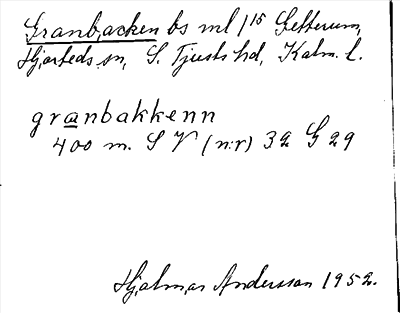 Granbacken bs ml 1¹⁵ Getterum,
Hjorteds sn, S. Tjusts hd, Kalm. l.
granbakkenn
400 m. S V (n:r) 32 G 29
Hjalmar Andersson 1952.